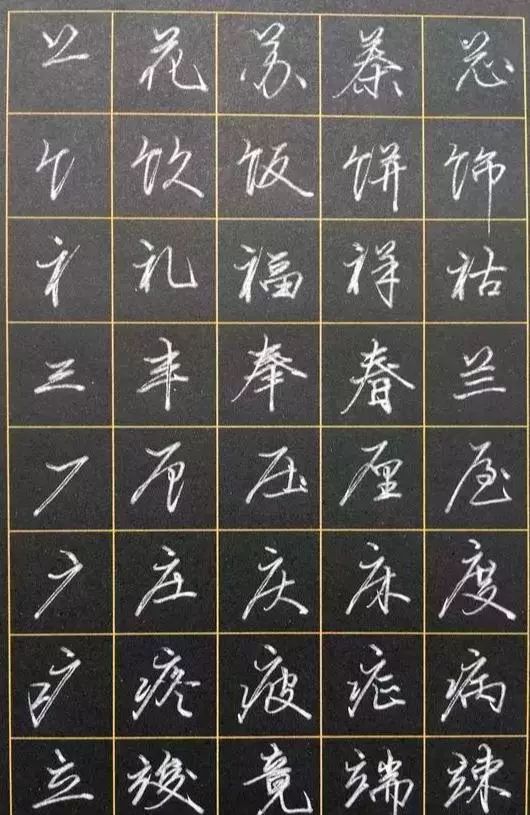 艹 花 苏 芯
饣 饮 饭 饼 饰
礻 礼 福 祥 祜
三 丰 奉 春 兰
厂 压 厘
广 庄 庆 床 度
疒 疼 疲 症 病
立 竣 竟 端 竦